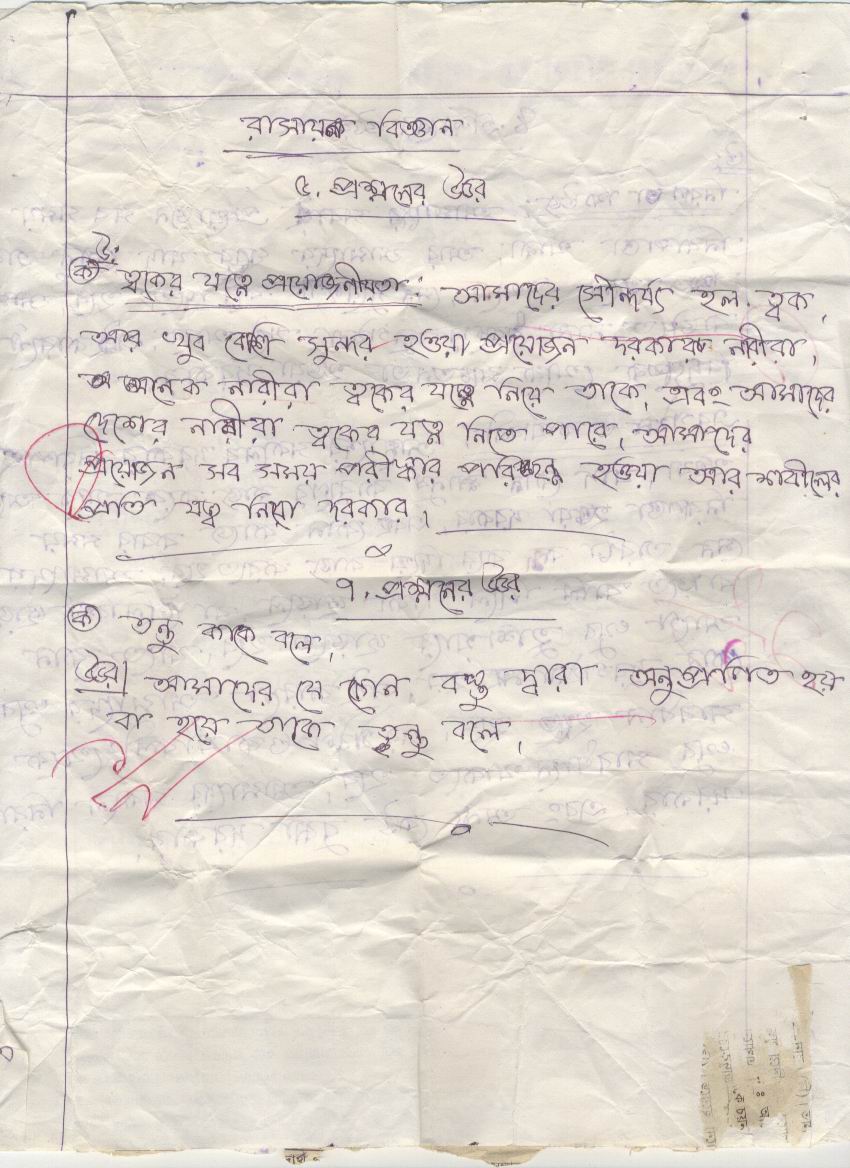 রাসায়নিক বিজ্ঞান
৫. প্রশ্মনের উত্তর
উ:
ক ত্বকের যত্নে প্রয়োজনীয়তা: আমাদের সৌন্দর্য হল ত্বক,
আর খুব বেশি সুন্দর হওয়া প্রয়োজন দরকার নারীরা,
অনেক নারীরা ত্বকের যত্নে নিয়ে তাকে, এবং আমাদের
দেশের নারীরা ত্বকের যত্ন নিতে পারে, আমাদের
প্রয়োজন সব সময় পরীস্কার পারিচ্ছন্ন হওয়া আর শারীলের
প্রতি যত্ন নিয়া দরকার,
৭. প্রশ্মনের উত্তর
ক তন্তু কাকে বলে,
উত্তর। আমাদের যে কোন বস্তু দ্বারা অনুপ্রাণিত হয়
বা হয়ে তাকে তুন্তু বলে,